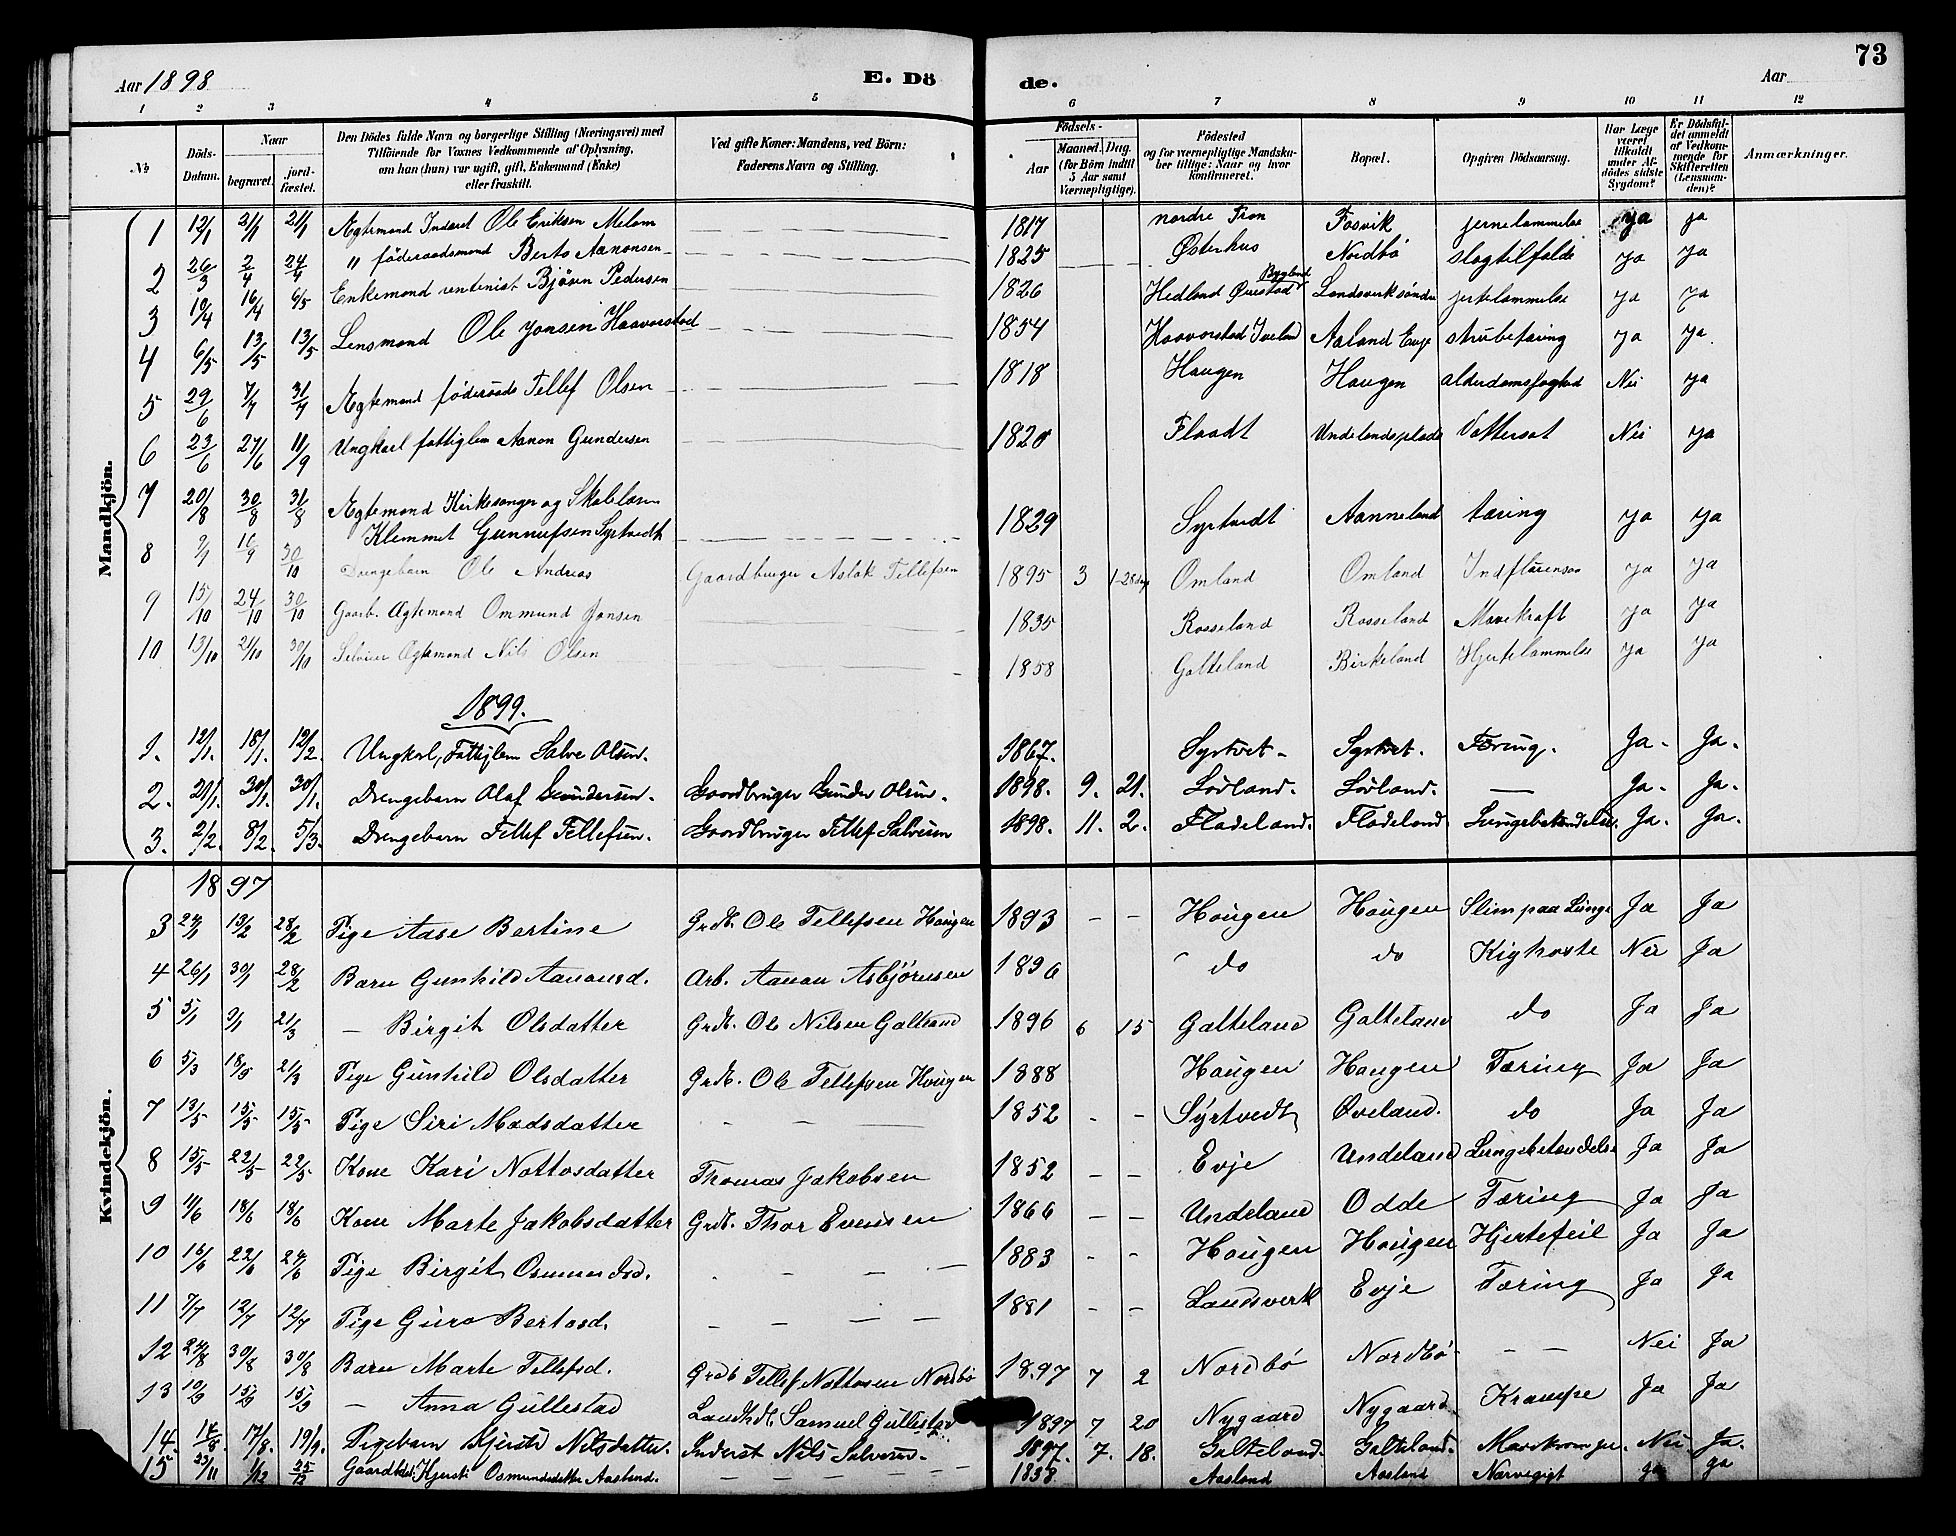 73
Aar 1898 E. Dö de. Aar
1 2 3 4 5 6 7 8 9 10 11 12
No Döds-Datum. Naar begravet. jord-fæstet. Den Dödes fulde Navn og borgerlige Stilling (Næringsvei) med Tilföiende for Voxnes Vedkommende af Oplysning, om han (hun) var ugift, gift, Enkemand (Enke) eller fraskilt. Ved gifte Koner: Mandens, ved Börn: Faderens Navn og Stilling. Födsels- Aar Maaned. Dag. (for Börn indtil 5 Aar samt Værnepligtige). Födested og for værnepligtige Mandska-ber tillige: Naar og hvor konfirmeret. Bopæl. Opgiven Dödsaarsag. Har Læge været tilkaldt under Af-dödes sidste Sygdom? Er Dödsfal-det anmeldt af Vedkom-mende for Skifteretten (Lensman-den)? Anmærkninger.
Mandkjön.
1 12/1 21/1 21/1 Ægtemand Inderst Ole Eriksen Melom 1817 nordre Fron Fosvik ja ja
2 26/3 2/4 24/4 " föderaadsmand Berto Aanonsen 1825 Østerhus Nordbö slagtilfælde ja ja
3 10/4 16/4 6/5 Enkemand rentenist Björen Pedersen 1826 Hedland Bygland ja ja
4 6/5 13/5 13/5 Lensmand Ole Jonsen Haavorstad 1854 Haavorstad Iveland Aaland Evje strubetæring ja ja
5 29/6 7/7 31/7 Ægtemand föderaads Tellef Olsen 1818 Haugen Haugen Nei ja
6 23/6 27/6 11/9 Ungkarl fattiglem Aanon Gundersen 1820 Flaadt Undelandsplads Vattersot Nei ja
7 20/8 30/8 31/8 Ægtemand Kirkesanger og Skolelærer
Klemmet Gunnufsen Syrtvedt 1829 Syrtvedt Aanneland tæring ja ja
8 9/9 16/9 30/10 Drengebarn Ole Andreas Gaardbruger Aslak Tellefsen 1895 3 Omland Omland ja ja
9 15/10 24/10 30/10 Gaarb. Ægtemand Ommund Jonsen 1835 Rosseland Rosseland Mavekræft ja ja
10 13/10 21/10 30/10 Selveier Ægtemand Nils Olsen 1858 Galteland Birkeland Hjertelammelse ja ja
1899.
1. 12/1. 18/1. 12/2. Ungkarl, Fattiglem Salve Olsen. 1867. Syrtvet. Syrtvet. Tæring. Ja. Ja.
2. 21/1. 30/1. 30/1. Drengebarn Olaf Gundersen. Gaardbruger Gunder Olsen. 1898. 9. 21. Lødland. Lødland. — Ja. Ja.
3. 2/2. 8/2. 5/3. Drengebarn Tellef Tellefsen. Gaardbruger Tellef Salvesen 1898. 11. 2. Fladeland. Fladeland. Lungebetændelse. Ja. Ja.
Kvindekjön.
1897
3 13/2 28/2 Pige Aase Bertine Grdb. Ole Tellefsen Hougen 1893 – – Hougen Hougen Slim paa Lunge Ja Ja
4 26/1 30/1 28/2 Barn Gunhild Aanonsd. Arb. Aanon Asbjörnsen 1896 do do Kighoste Nei Ja
5 5/1 9/1 21/3 — Birgit Olsdatter Grdb. Ole Nilsen Galteland 1896 6 15 Galteland Galteland do Ja Ja
6 5/3 21/3 Pige Gunhild Olsdatter Grdb. Ole Tellefsen Hougen 1888 Hougen Hougen Tæring Ja Ja
7 13/5 15/5 15/5 Pige Siri Madsdatter 1852 – – Syrtvedt Øveland. do Ja Ja
8 15/5 22/5 22/5 Kone Kari Nottosdatter Thomas Jakobsen 1852 – – Evje Undeland Lungebetændelse Ja Ja
9 11/6 18/6 18/6 Kone Marte Jakobsdatter Grdb. Thor Evensen 1866 – – Undeland Odde Tæring Ja Ja
10 16/6 22/6 27/6 Pige Birgit Osmundsd. 1883 – – Hougen Hougen Hjertefeil Ja Ja
11 7/7 12/7 12/7 Pige Guro Bertosd. 1881 – – Landsverk Evje Tæring Ja Ja
12 24/8 30/8 30/8 Barn Marte Tellefsd. Grdb Tellef Nottosen Nordbö 1897 7 2 Nordbö Nordbö – – Nei Ja
13 10/9 15/9 15/9 — Anna Gullestad Landhdl. Samuel Gullestad 1897 7 20 Nygaard Nygaard Krampe Ja Ja
14. 17/8. 19/9. Pigebarn Kjersti Nilsdatter. Inderst Nils Salvesen. 1897. 7. 18. Galteland. Galteland. Nei. Ja.
15 23/11 1/12 25/12 Kjersti Osmundsdatter Aasland. 1838 Aasland Aasland ja ja